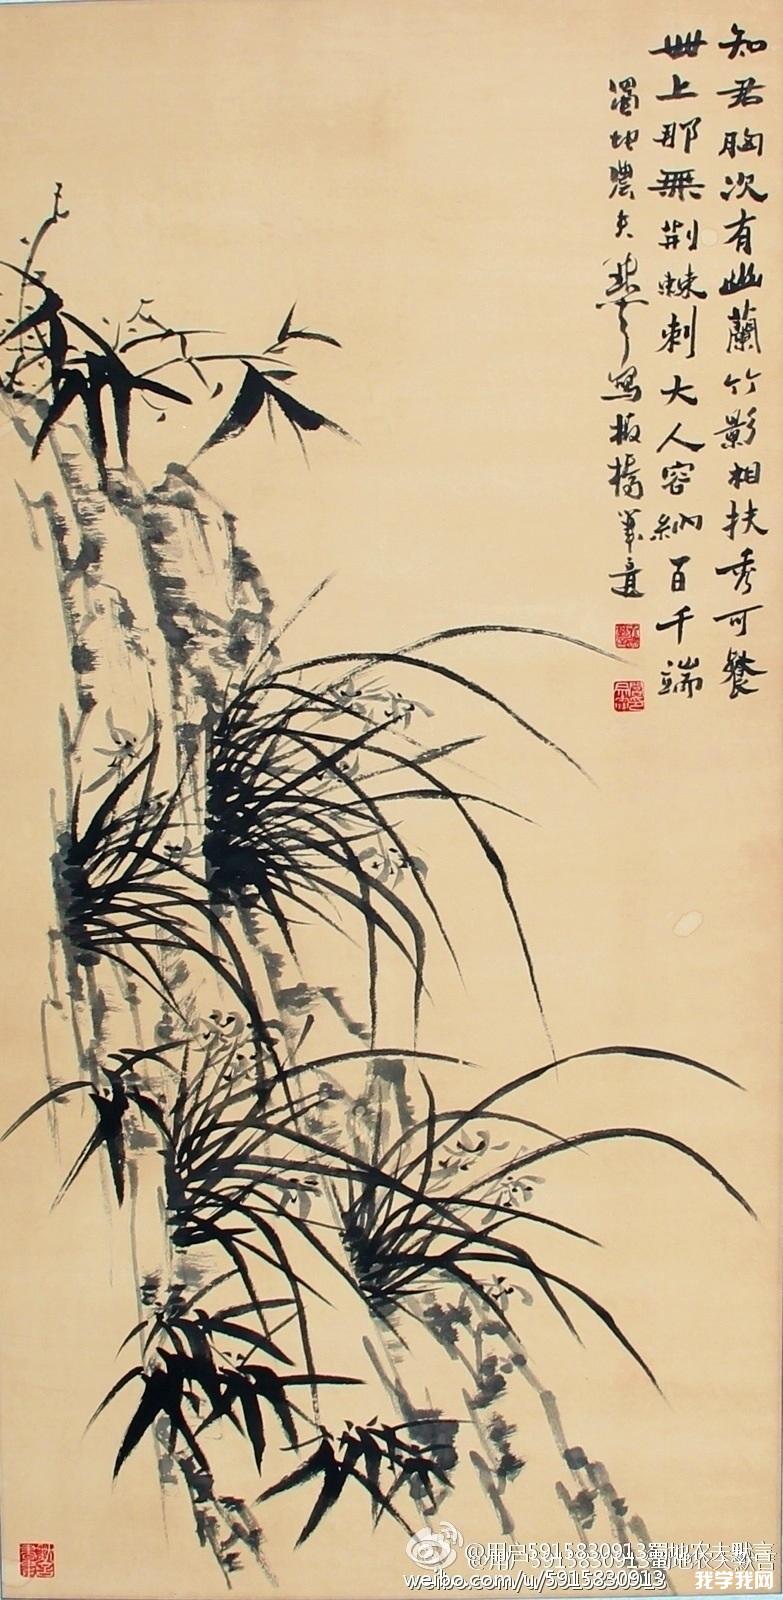 知君胸次有幽蘭竹影相扶秀可餐
世上那無荆棘刺大人容納百千端
蜀地農夫默言寫板橋筆意
@用户5915830913蜀地农夫默言
weibo.com/u/5915830913
我学我网